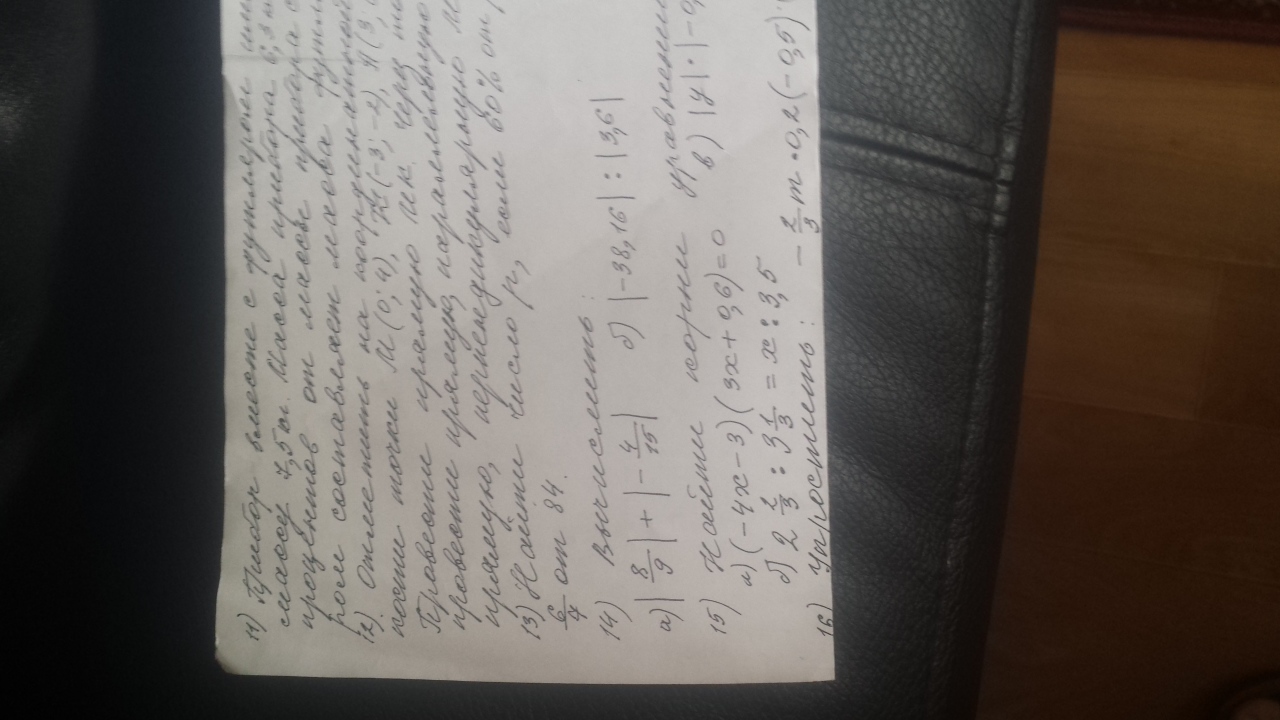 11) Прибор вместе с футляром
массу 7,5 кг. Масса прибора 6,3
процентов от массы прибора с
ром составляет масса
12). Отметить на координатной
кости точки М(0; 4), К(-3; -2), А(3;
Провести прямую МК. Через
провести прямую, параллельную
прямую, перпендикулярную М
13) Найти число р, если 60% от р
6/7 от 84.
14) Вычислить:
а) |8/9| + |-4/15| б) |-38,16| : |3,6|
15) Найти корни уравнения
а) (-4x-3)(3x+0,6)=0 в) |y|·|-0,
б) 2 2/3 : 3 1/3 = x : 3,5
16) Упростить: -2/3 m · 0,2(-0,5)